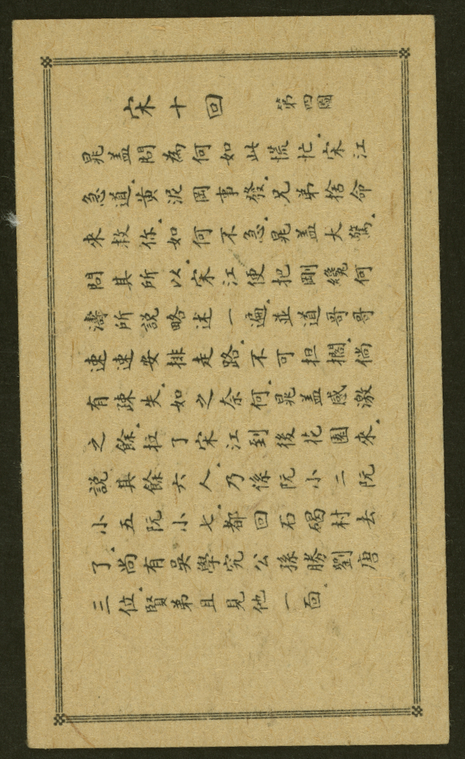 宋十回 第四圖
晁盖問為何如此慌忙。宋江
急道。黄泥岡事發。兄弟捨命
來救你。如何不急。晁盖大驚。
問其所以。宋江便把剛纔何
濤所説略述一遍。並道哥哥
速速安排走路。不可担擱。倘
有疎失。如之奈何。晁盖感激
之餘。拉了宋江到後花園來。
説其餘六人。乃係阮小二阮
小五阮小七。都回石碣村去
了。尚有吳學究公孫勝劉唐
三位。賢弟且見他一面。